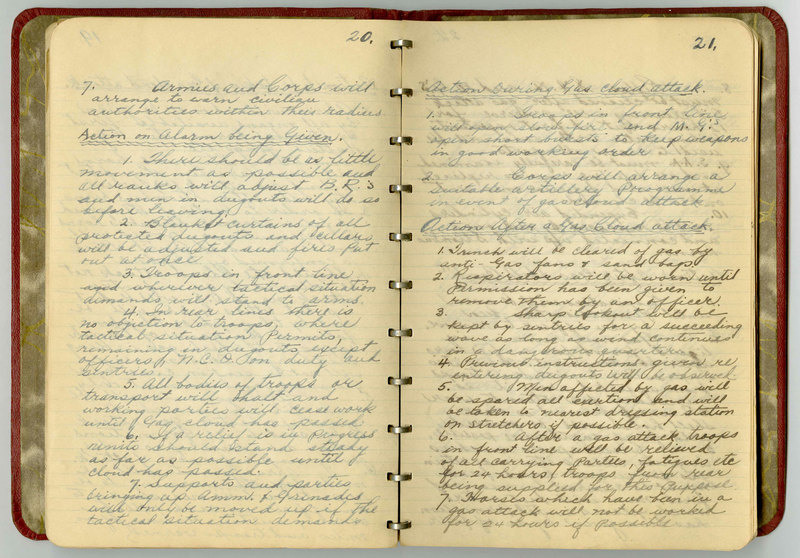 20.
7. Armies and Corps will
arrange to warn civilian
authorities within their radius
Action on Alarm being Given.
1. There should be as little
movement as possible and
all ranks will adjust B.R.s
and men in dugouts will do so
before leaving.
2. Blanket curtains of all
protected dugouts and cellars
will be adjusted and fires put
out at once
3. Troops in front line
and wherever tactical situation
demands will stand to arms.
4. In rear lines there is
no objection to troops, where
tactical situation permits,
remaining in dugouts except
officers, N.C.O. on duty and
sentries.
5. All bodies of troops or
transport will halt and
working parties will cease work
until Gas cloud has passed
6. If a relief is in progress
units should stand steady
as far as possible until
cloud has passed.
7. Supports and parties
bringing up Amm. & Grenades
will only be moved up if the
tactical situation demands
21.
Action During Gas cloud attack.
1. Troops in front line
will open slow fire and M.G.s
open short bursts to keep weapons
in good working order
2. Corps will arrange a
suitable artillery Programme
in event of gas cloud attack
Actions After a Gas Cloud attack.
1. Trench will be cleared of gas by
anti Gas fans & sand bags
2. Respirators will be worn until
Permission has been given to
remove them by an officer.
3. Sharp lookout will be
kept by sentries for a succeeding
wave as long as wind continues
in a dangerous quarter
4. Previous instructions given re
entering dugouts will be observed
5. Men affected by gas will
be spared all exertion and will
be taken to nearest dressing station
on stretchers if possible.
6. After a gas attack troops
in front line will be relieved
of all carrying Parties, fatigues etc
for 24 hours, troops in rear
being supplied for this purpose
7. Horses which have been in a
gas attack will not be worked
for 24 hours if possible